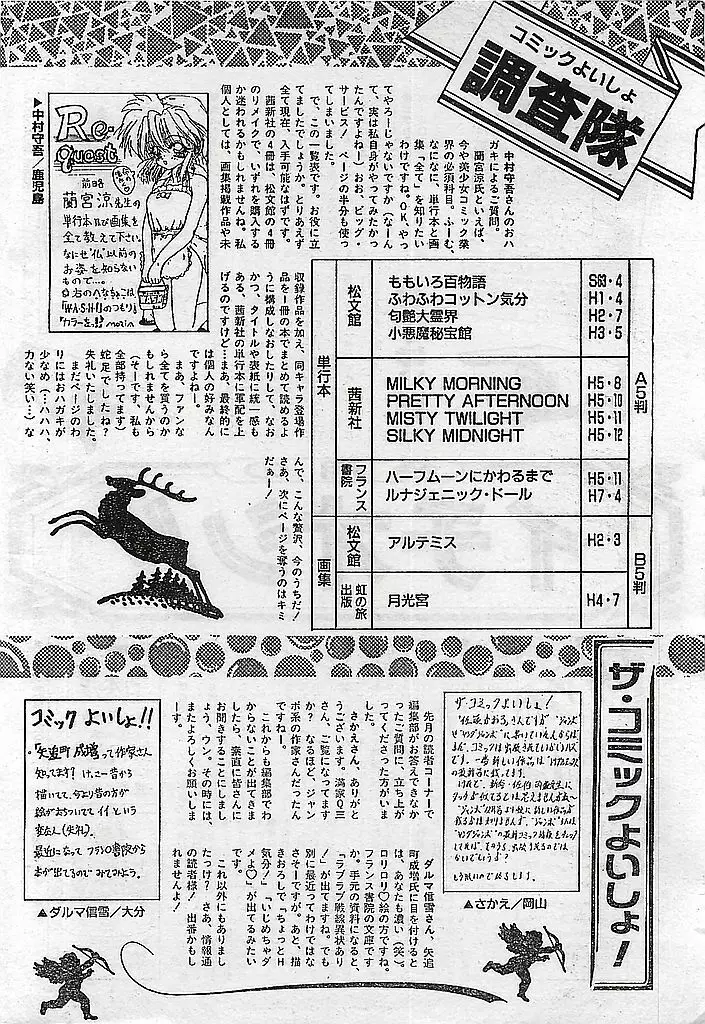 コミックよいしょ
調査隊
中村守吾さんのおハ
ガキによるご質問。
蘭宮涼氏といえば、
今や美少女コミック業
界の必須科目。ふーむ、
なになに、単行本と画
集「全て」を知りたい
わけですね。OK、やっ
てやろーじゃないですか（なーん
て、実は私自身がやってみたかっ
たんですよねー）おお、ビッグ・
サービス！ ページの半分も使っ
てしまいました。
で、この一覧表です。お役に立
てましたでしょうか。とりあえず
全て現在、入手可能なはずです。
茜新社の4冊は、松文館の4冊
のリメイクで、いずれを購入する
か迷われるかもしれませんね。私
個人としては、画集掲載作品や未
収録作品を加え、同キャラ登場作
品を1冊の本でまとめて読めるよ
うに構成しなおしたりして、なお
かつ、タイトルや表紙に統一感も
ある、茜新社の単行本に軍配を上
げるのですけど…まあ、最終的に
は個人の好みなん
ですよねー。
まあ、ファンな
ら全てを買うのか
もしれませんから
（そーです、私も
全部持ってます）
蛇足でしたね？
失礼いたしました。
まだページのわ
りにはおハガキが
少なめ（…ハハハ、
力ない笑い…）な
んで、こんな贅沢、今のうちだ！
さあ、次にページを奪うのはキミ
だぁー！
Re・
quest
前略
蘭宮涼先生の
単行本及び画集を
全て教えて下さい。
なにせ"仏"以前の
お姿を知らない
もので…。
▶中村守吾／鹿児島
単行本
松文館
ももいろ百物語 S63・4
ふわふわコットン気分 H1・4
匂艶大霊界 H2・7
小悪魔秘宝館 H3・5
茜新社
MILKY MORNING H5・8
PRETTY AFTERNOON H5・10
MISTY TWILIGHT H5・11
SILKY MIDNIGHT H5・12
フランス書院
ハーフムーンにかわるまで H5・11
ルナジェニック・ドール H7・4
A5判
画集
松文館
アルテミス H2・3
虹の旅出版
月光宮 H4・7
B5判
ザ・コミックよいしょ！
ザ・コミックよいしょ！
▲さかえ／岡山
先月の読者コーナーで
編集部がお答えできなか
ったご質問に、立ち上が
ってくださった方がいま
した。
さかえさん、ありがと
うございます。満家Q三
さん、ご覧になってます
か？ なるほど、ジャン
ボ系の作家さんだったん
ですねー。
これからも編集部でわ
からないことが出てきま
したら、素直に皆さんに
お聞きすることにしまし
ょう、ウン。その時には、
またよろしくお願いしま
ーす。
ダルマ信雪さん、矢追
町成増氏に目を付けると
は、あなたも濃い（笑）。
ロリロリ♡絵の方ですね。
フランス書院の文庫です
か。手元の資料になると、
「ラブラブ戦線異状あり
！」が出てますね。でも
別に最近ってわけではな
さそーですが。あと、描
きおろしで「ちょっとH
気分！」「いじめちゃダ
メよ♡」が出てるみたい
です。
これ以外にもありまし
たっけ？ さあ、情報通
の読者様！ 出番かもし
れませんよ！
コミック よいしょ!!
「矢追町 成増」って作家さん
知ってます？ けっこー昔から
描いてて、今より昔の方が
絵がおちついてて イイ という
変な人(失礼)。
最近になって フランス書院から
本が出てるので みてみよう。
▲ダルマ信雪／大分